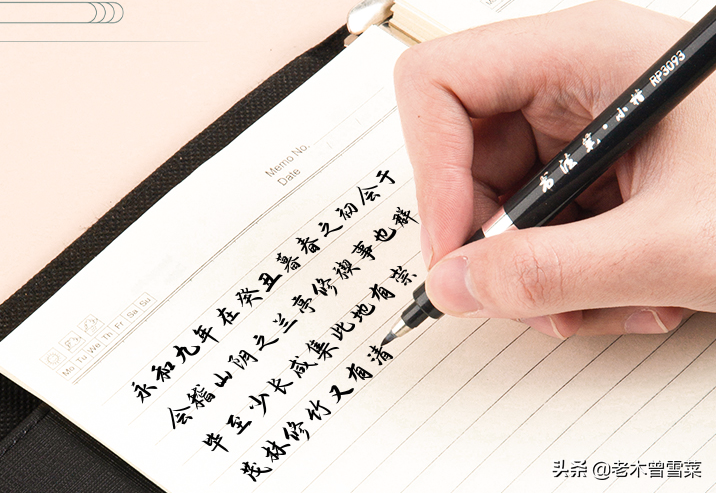 Memo No.
Date
Mo Tu We Th Fr Sa Su
永和九年在癸丑暮春之初会于
会稽山阴之兰亭修禊事也群
毕至少长咸集此地有崇
茂林修竹又有清
书法笔·小楷 RP3093
头条 @老木曾雪菜